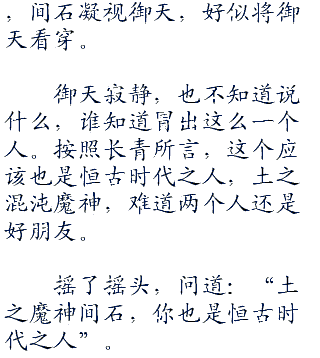 ，间石凝视御天，好似将御
天看穿。
御天寂静，也不知道说
什么，谁知道冒出这么一个
人。按照长青所言，这个应
该也是恒古时代之人，土之
混沌魔神，难道两个人还是
好朋友。
摇了摇头，问道：“土
之魔神间石，你也是恒古时
代之人”。